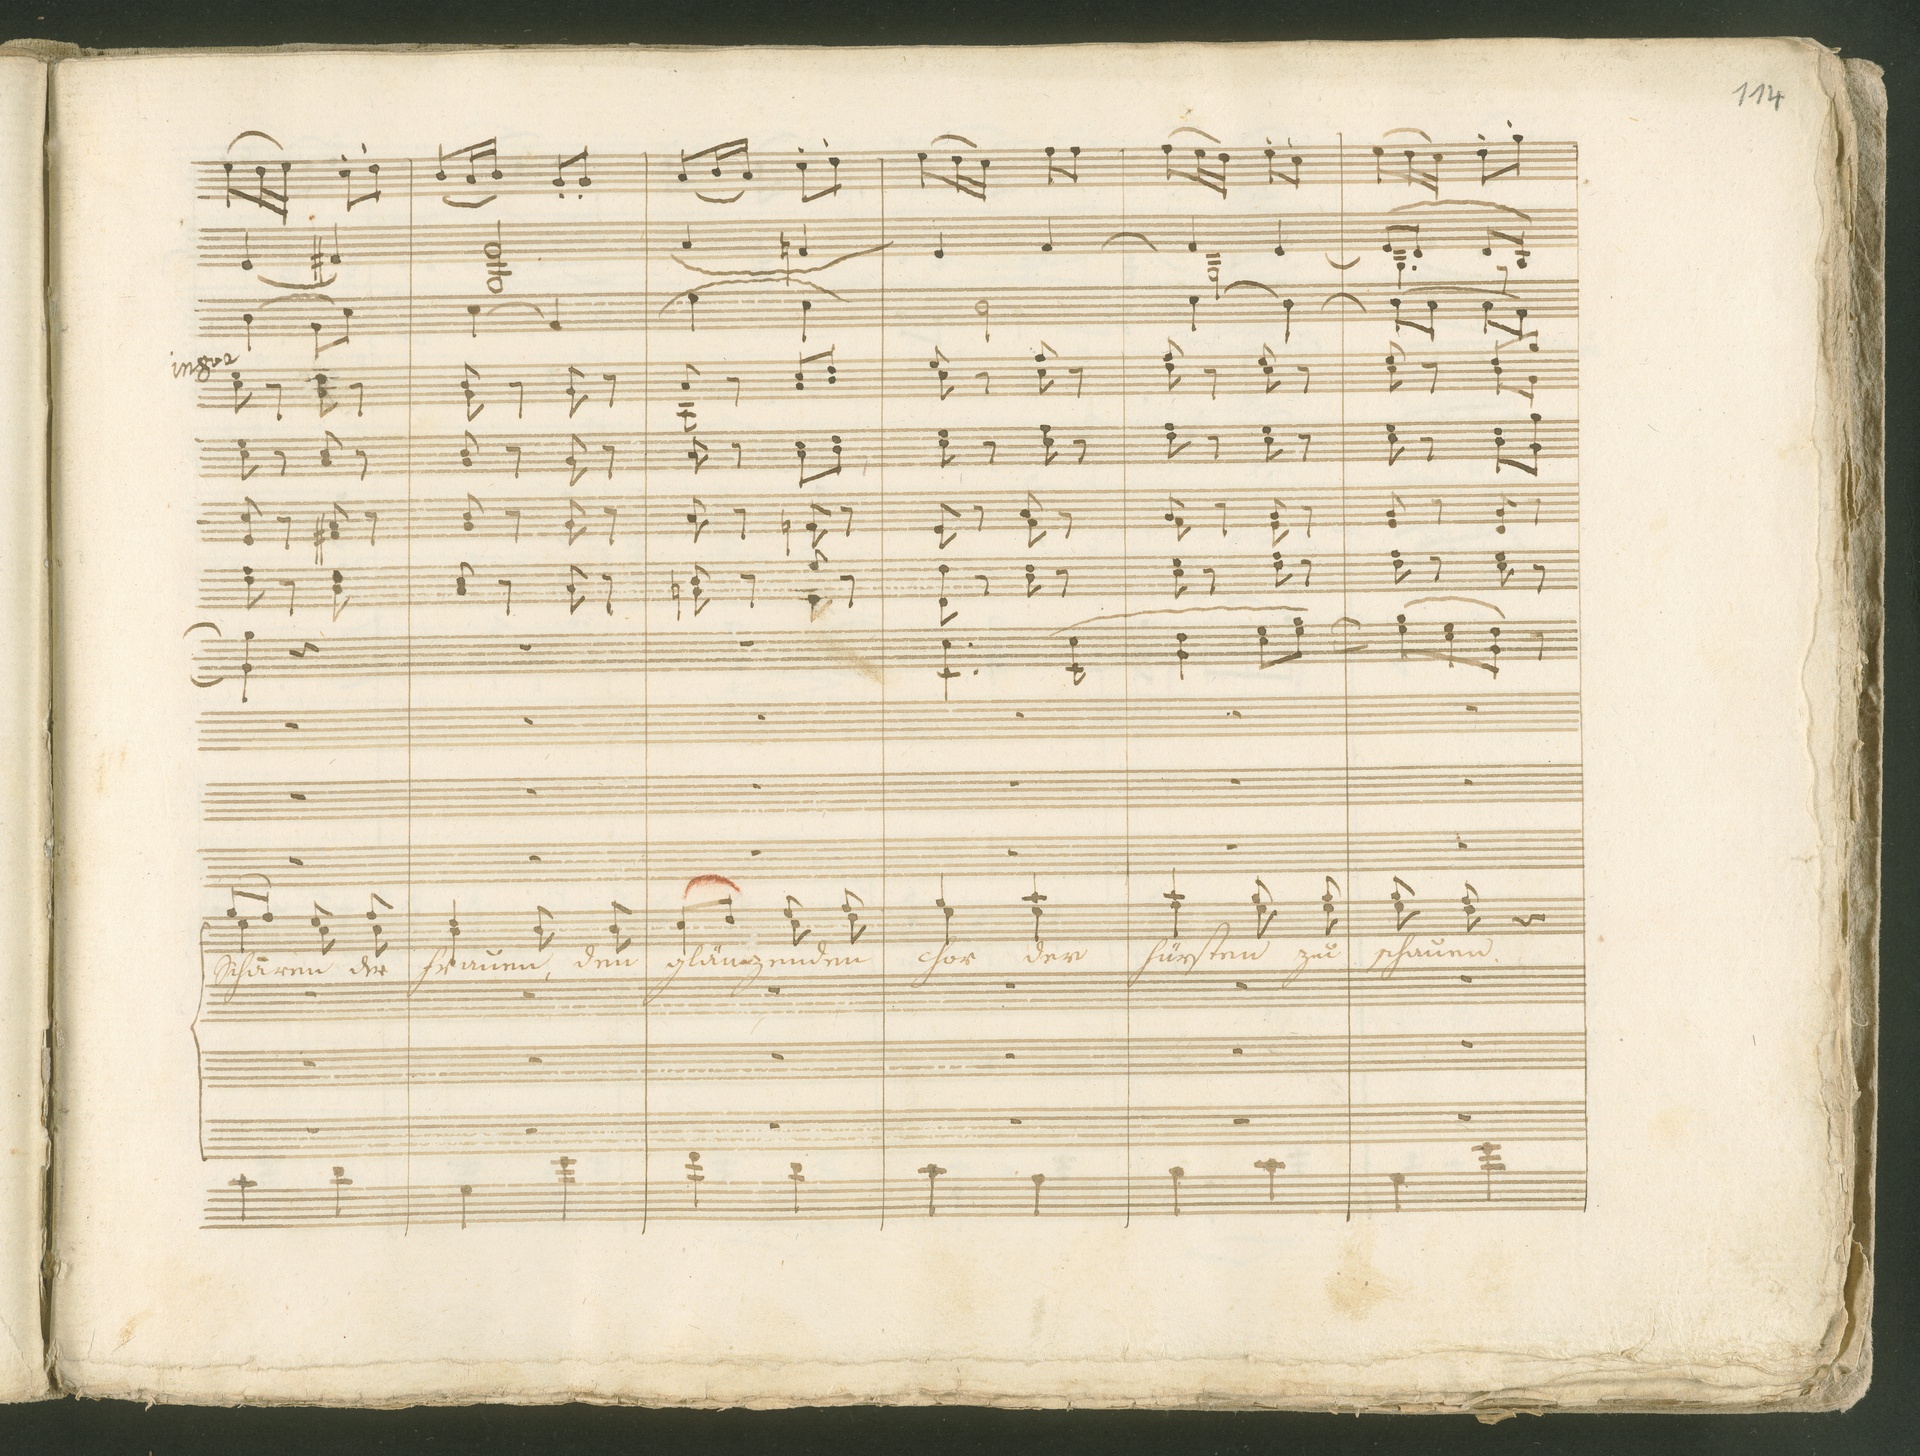 114
in 8va
Scharen der Frauen, den glänzenden Chor der Fürsten zu schauen.